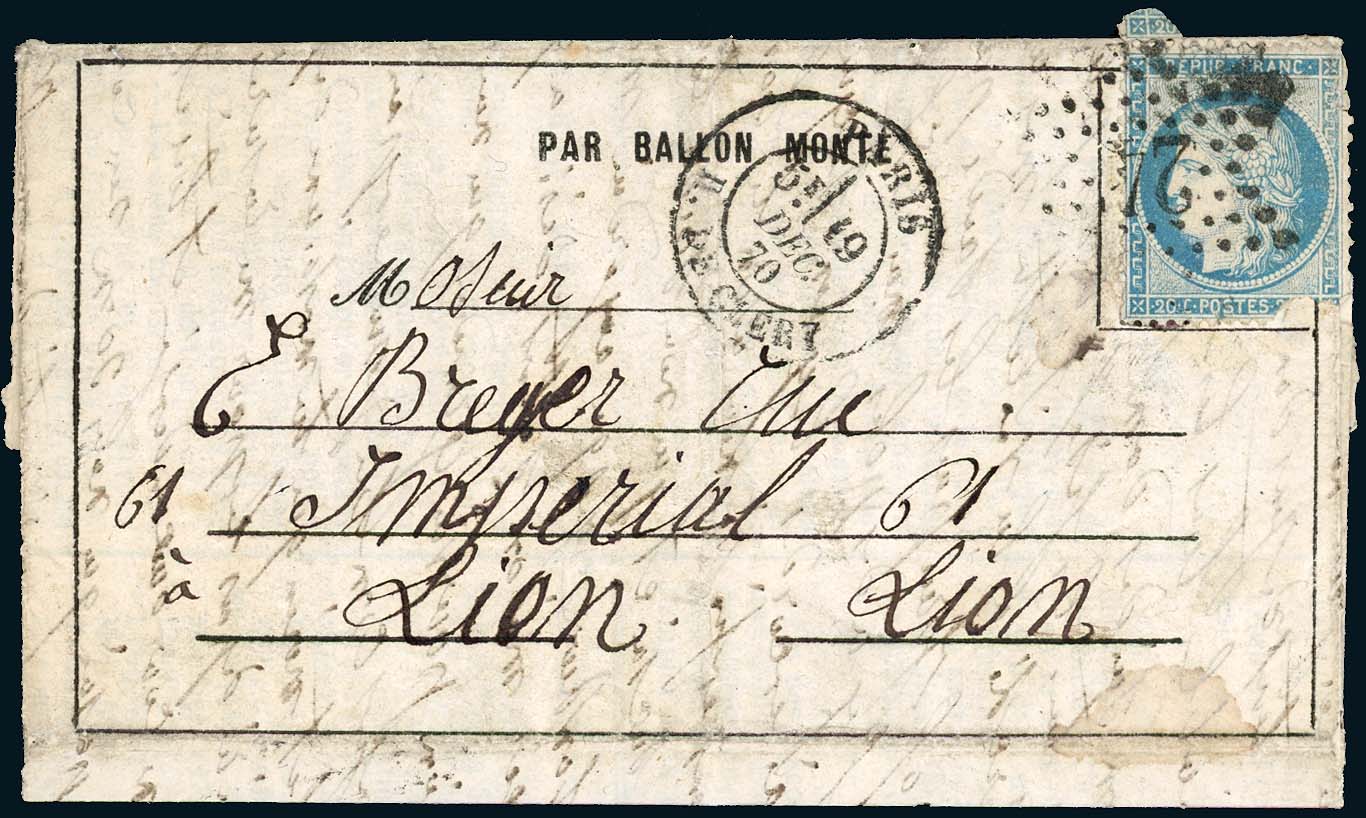 PAR BALLON MONTÉ
PARIS
R. DE CLERY
5E / 19
DEC.
70
24
REPUB. FRANC.
20 C. POSTES
Mosieur
E Breger rue
61 Imperial 61
à Lion Lion